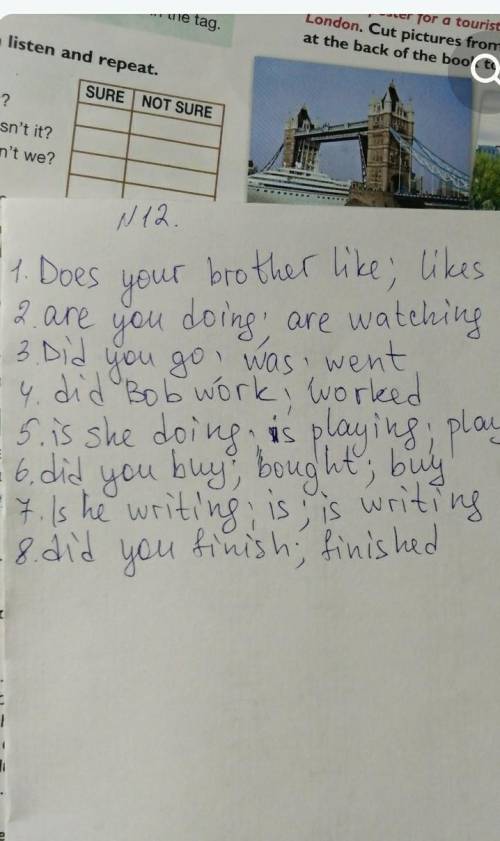 the tag.
for a tourist
London. Cut pictures from
at the back of the book to
listen and repeat.
SURE NOT SURE
?
sn't it?
n't we?
N12.
1. Does your brother like; likes
2. are you doing; are watching
3. Did you go; was; went
4. did Bob work; worked
5. is she doing; is playing; play
6. did you buy; bought; buy
7. Is he writing; is; is writing
8. did you finish; finished